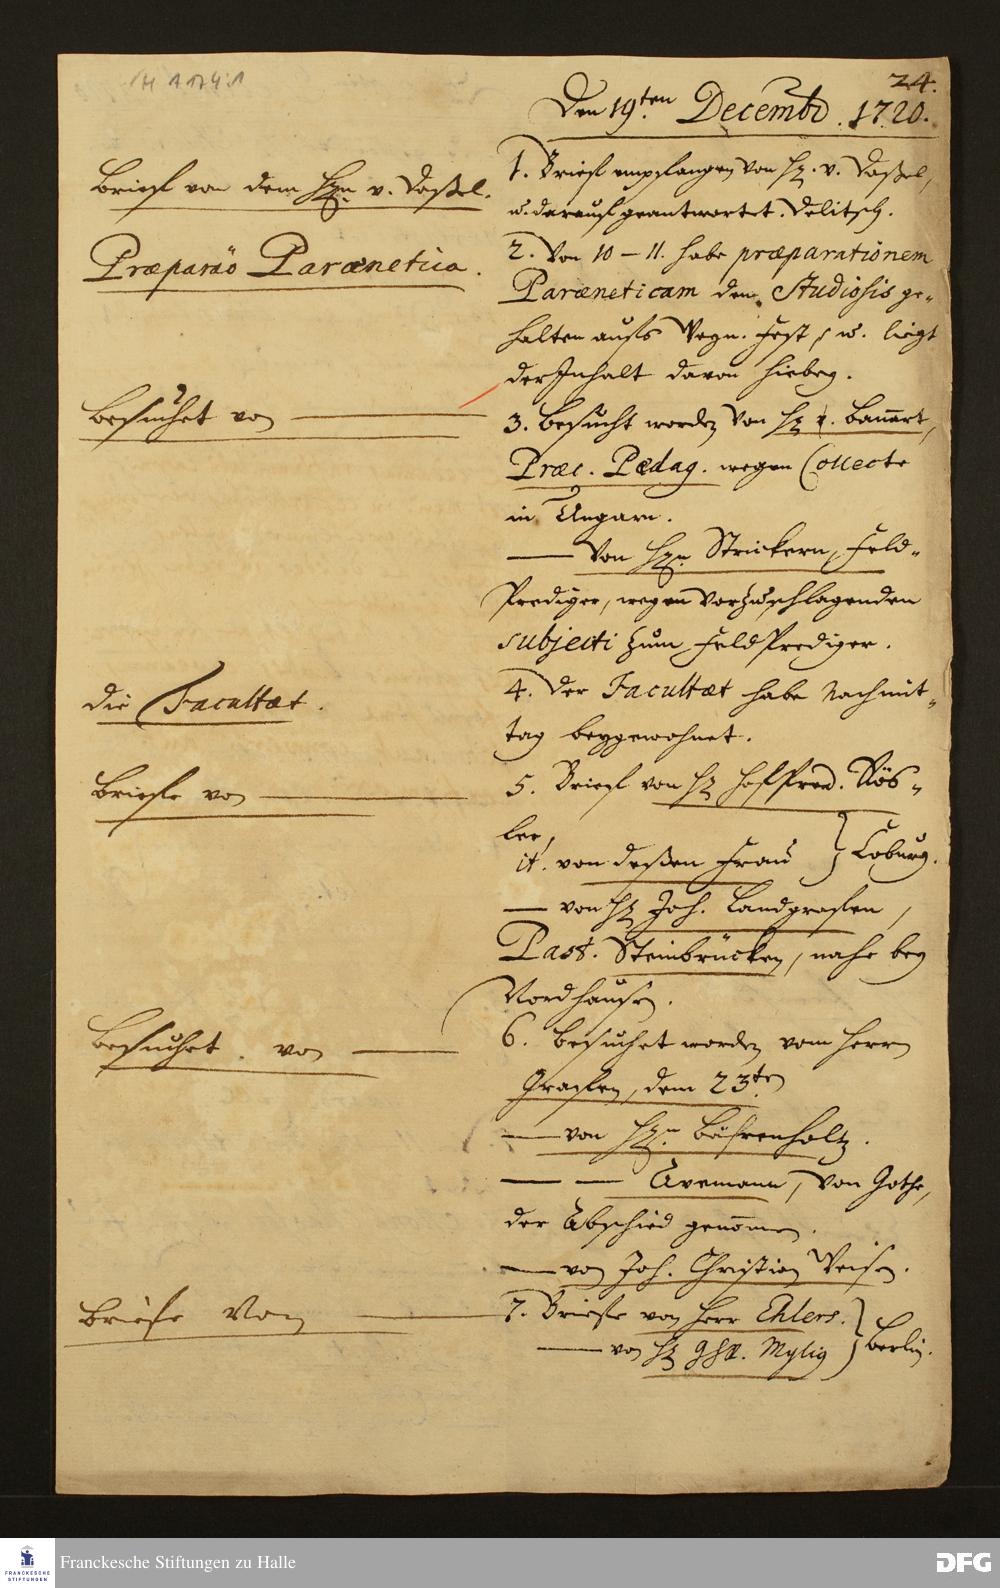 24.
Den 19.ten Decembr. 1720.
Brieff von dem Hrn. v. Daßel.
1. Brieff empfangen von H. v. Daßel,
u. darauf geantwortet. Delitsch.
Præparão Parænetica.
2. Von 10 – 11. habe præparationem
Paræneticam den Studiosis ge-
halten aufs Weyn. Fest, u. liegt
der Inhalt davon hiebey.
Besuchet von
3. Besucht worden von H. Bannert,
Præc. Pædag. wegen Collecte
in Ungarn.
— Von Hrn. Strickern, Feld-
Prediger, wegen vorzuschlagenden
subjecti zum FeldPrediger.
die Facultæt.
4. Der Facultæt habe Nachmit-
tag beygewohnet.
Brieffe von
5. Brieff von H. HoffPred. Rös-
ler,
it. von deßen Frau } Coburg.
— von H. Joh. Landgrafen,
Past. Steinbrücken, nahe bey
Nordhausen.
Besuchet von
6. Besuchet worden vom Herrn
Grafen, dem 23ten
— von Hrn. Bährenholtz.
— — Avemann, von Gotha,
der Abschied genommen.
— von Joh. Christian Weise.
Briefe Von
7. Brieffe von Herr Ehlers.
— von H. Mylig } Berlin.
Franckesche Stiftungen zu Halle
FRANCKESCHE
STIFTUNGEN
DFG